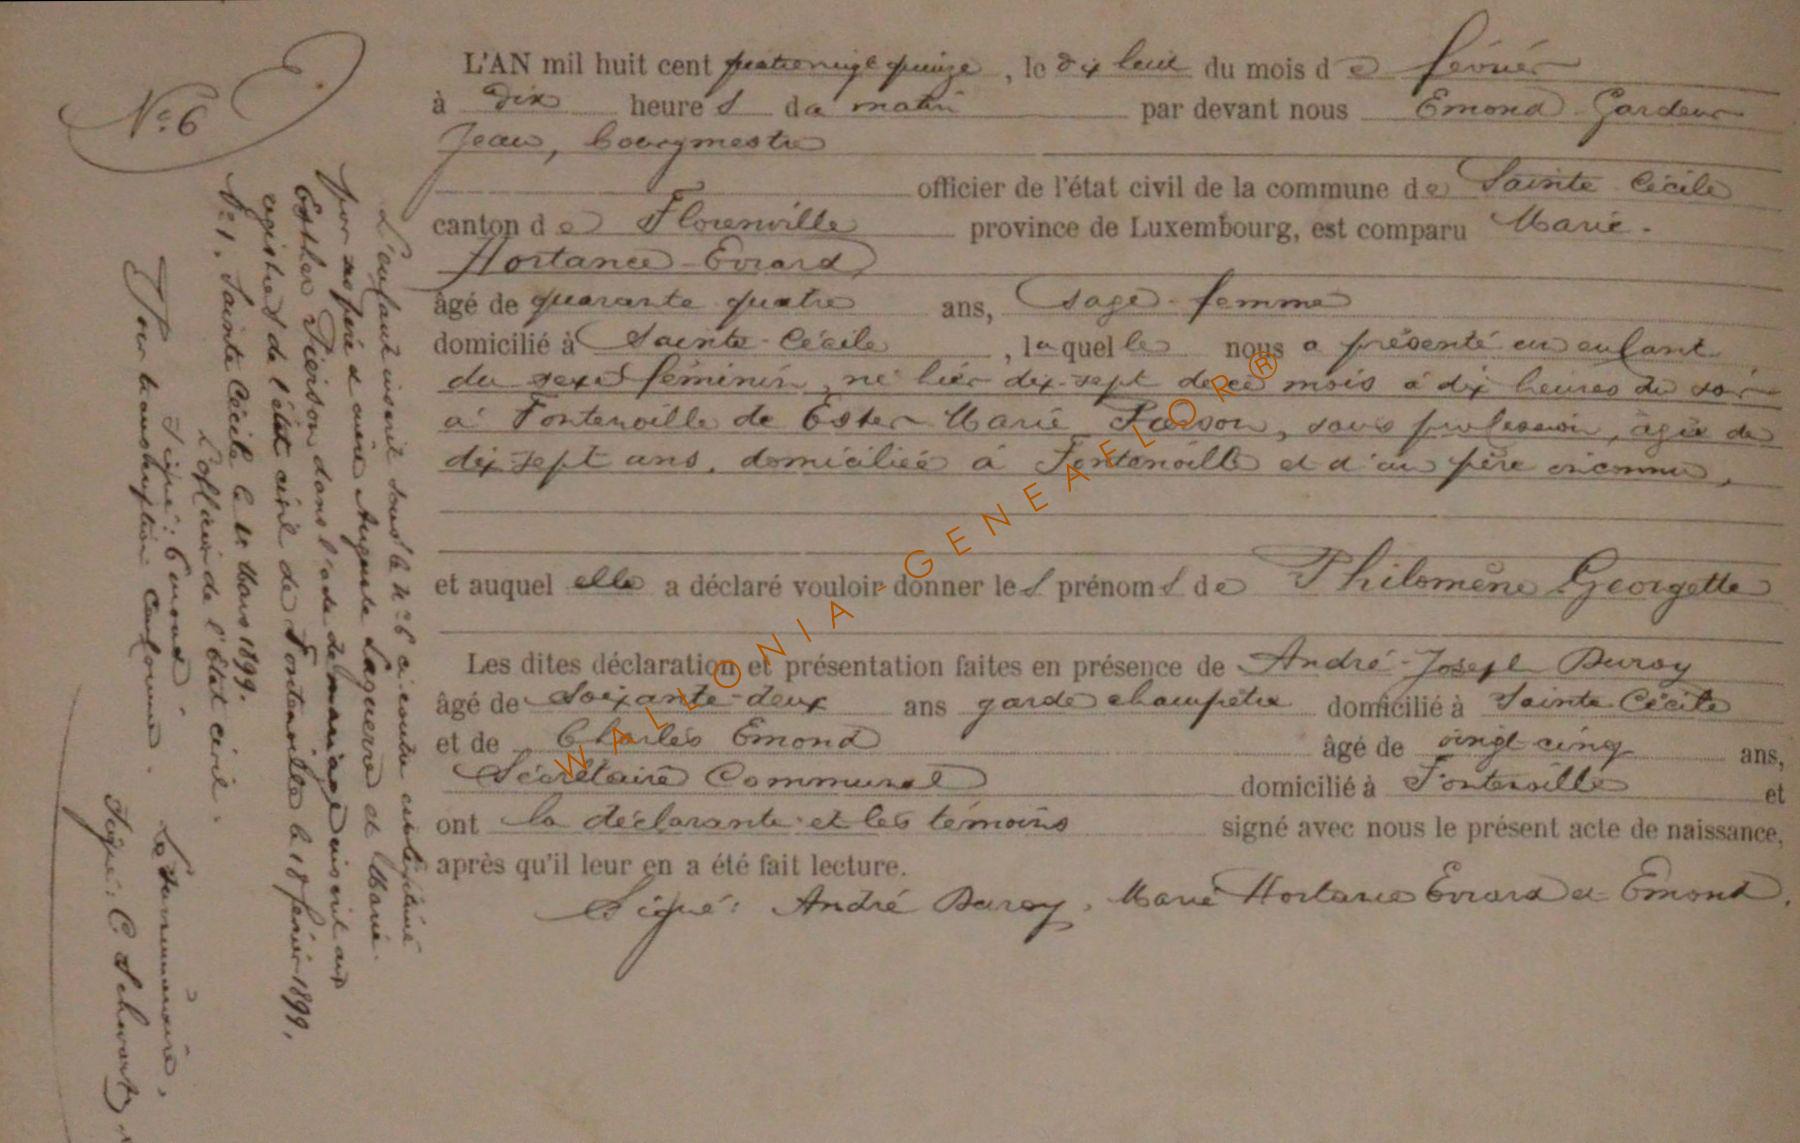 N° 6
L'AN mil huit cent quatrevingt quinze, le dix huit du mois de février
à dix heures du matin par devant nous Emond Gardeur
Jean, bourgmestre
officier de l'état civil de la commune de Sainte Cécile
canton de Florenville province de Luxembourg, est comparu Marie
Hortance Evrard
âgé de quarante quatre ans, sage-femme
domicilié à Sainte-Cécile, laquelle nous a présenté un enfant
du sexe féminin, né hier dix-sept de ce mois à dix heures du soir
à Fontenoille de Ester Marie Pierson, sans profession, âgée de
dix sept ans, domiciliée à Fontenoille et d'un père inconnu,
et auquel elle a déclaré vouloir donner les prénoms de Philomène Georgette
Les dites déclaration et présentation faites en présence de André-Joseph Duroy
âgé de soixante-deux ans garde champêtre domicilié à Sainte Cécile
et de Charles Emond âgé de vingt cinq ans,
Secrétaire Communal domicilié à Fontenoille et
ont la déclarante et les témoins signé avec nous le présent acte de naissance,
après qu'il leur en a été fait lecture.
Signé: André Duroy, Marie Hortance Evrard et Emond.
L'enfant inscrit sous le N° 6 ci-contre est légitimé
par ses père et mère Auguste Laguerre et Marie
Esther Pierson dans l'acte de mariage inscrit aux
registres de l'état civil de Fontenoille le 18 février 1899,
N° 1. Sainte Cécile le 21 Mars 1899.
L'officier de l'Etat civil.
Signé: Emond
Pour transcription conforme.
Signé: C. Schwartz
WALLONIA-GENEAFLOR®